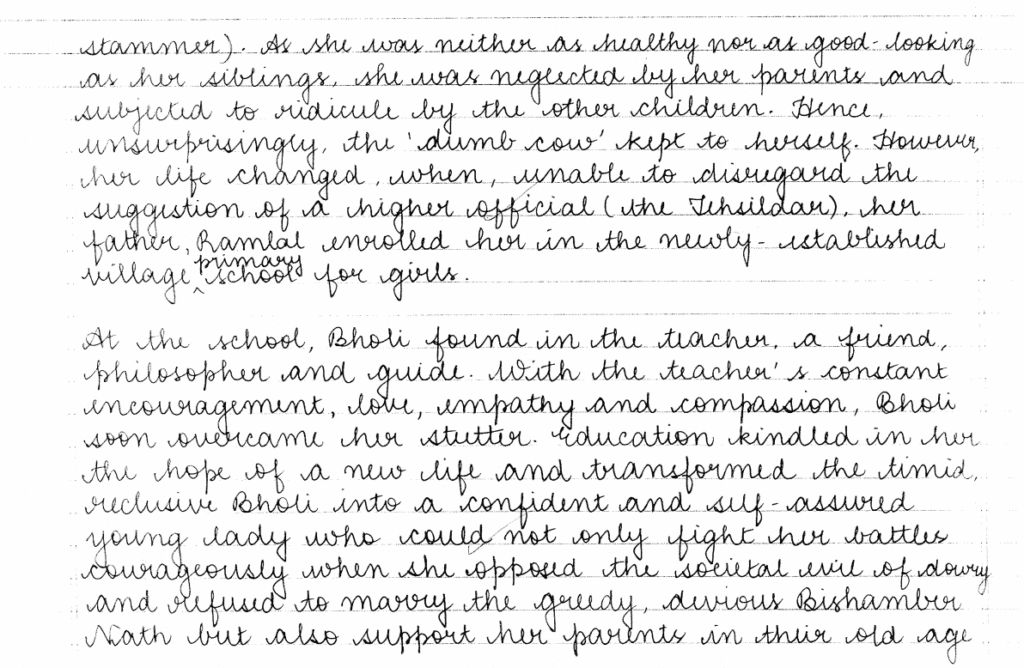 stammer). As she was neither as healthy nor as good-looking
as her siblings, she was neglected by her parents and
subjected to ridicule by the other children. Hence,
unsurprisingly, the 'dumb cow' kept to herself. However,
her life changed, when, unable to disregard the
suggestion of a higher official (the Tehsildar), her
father, Ramlal enrolled her in the newly-established
village primary school for girls.
At the school, Bholi found in the teacher, a friend,
philosopher and guide. With the teacher's constant
encouragement, love, empathy and compassion, Bholi
soon overcame her stutter. Education kindled in her
the hope of a new life and transformed the timid,
reclusive Bholi into a confident and self-assured
young lady who could not only fight her battles
courageously when she opposed the societal evil of dowry
and refused to marry the greedy, devious Bishamber
Nath but also support her parents in their old age